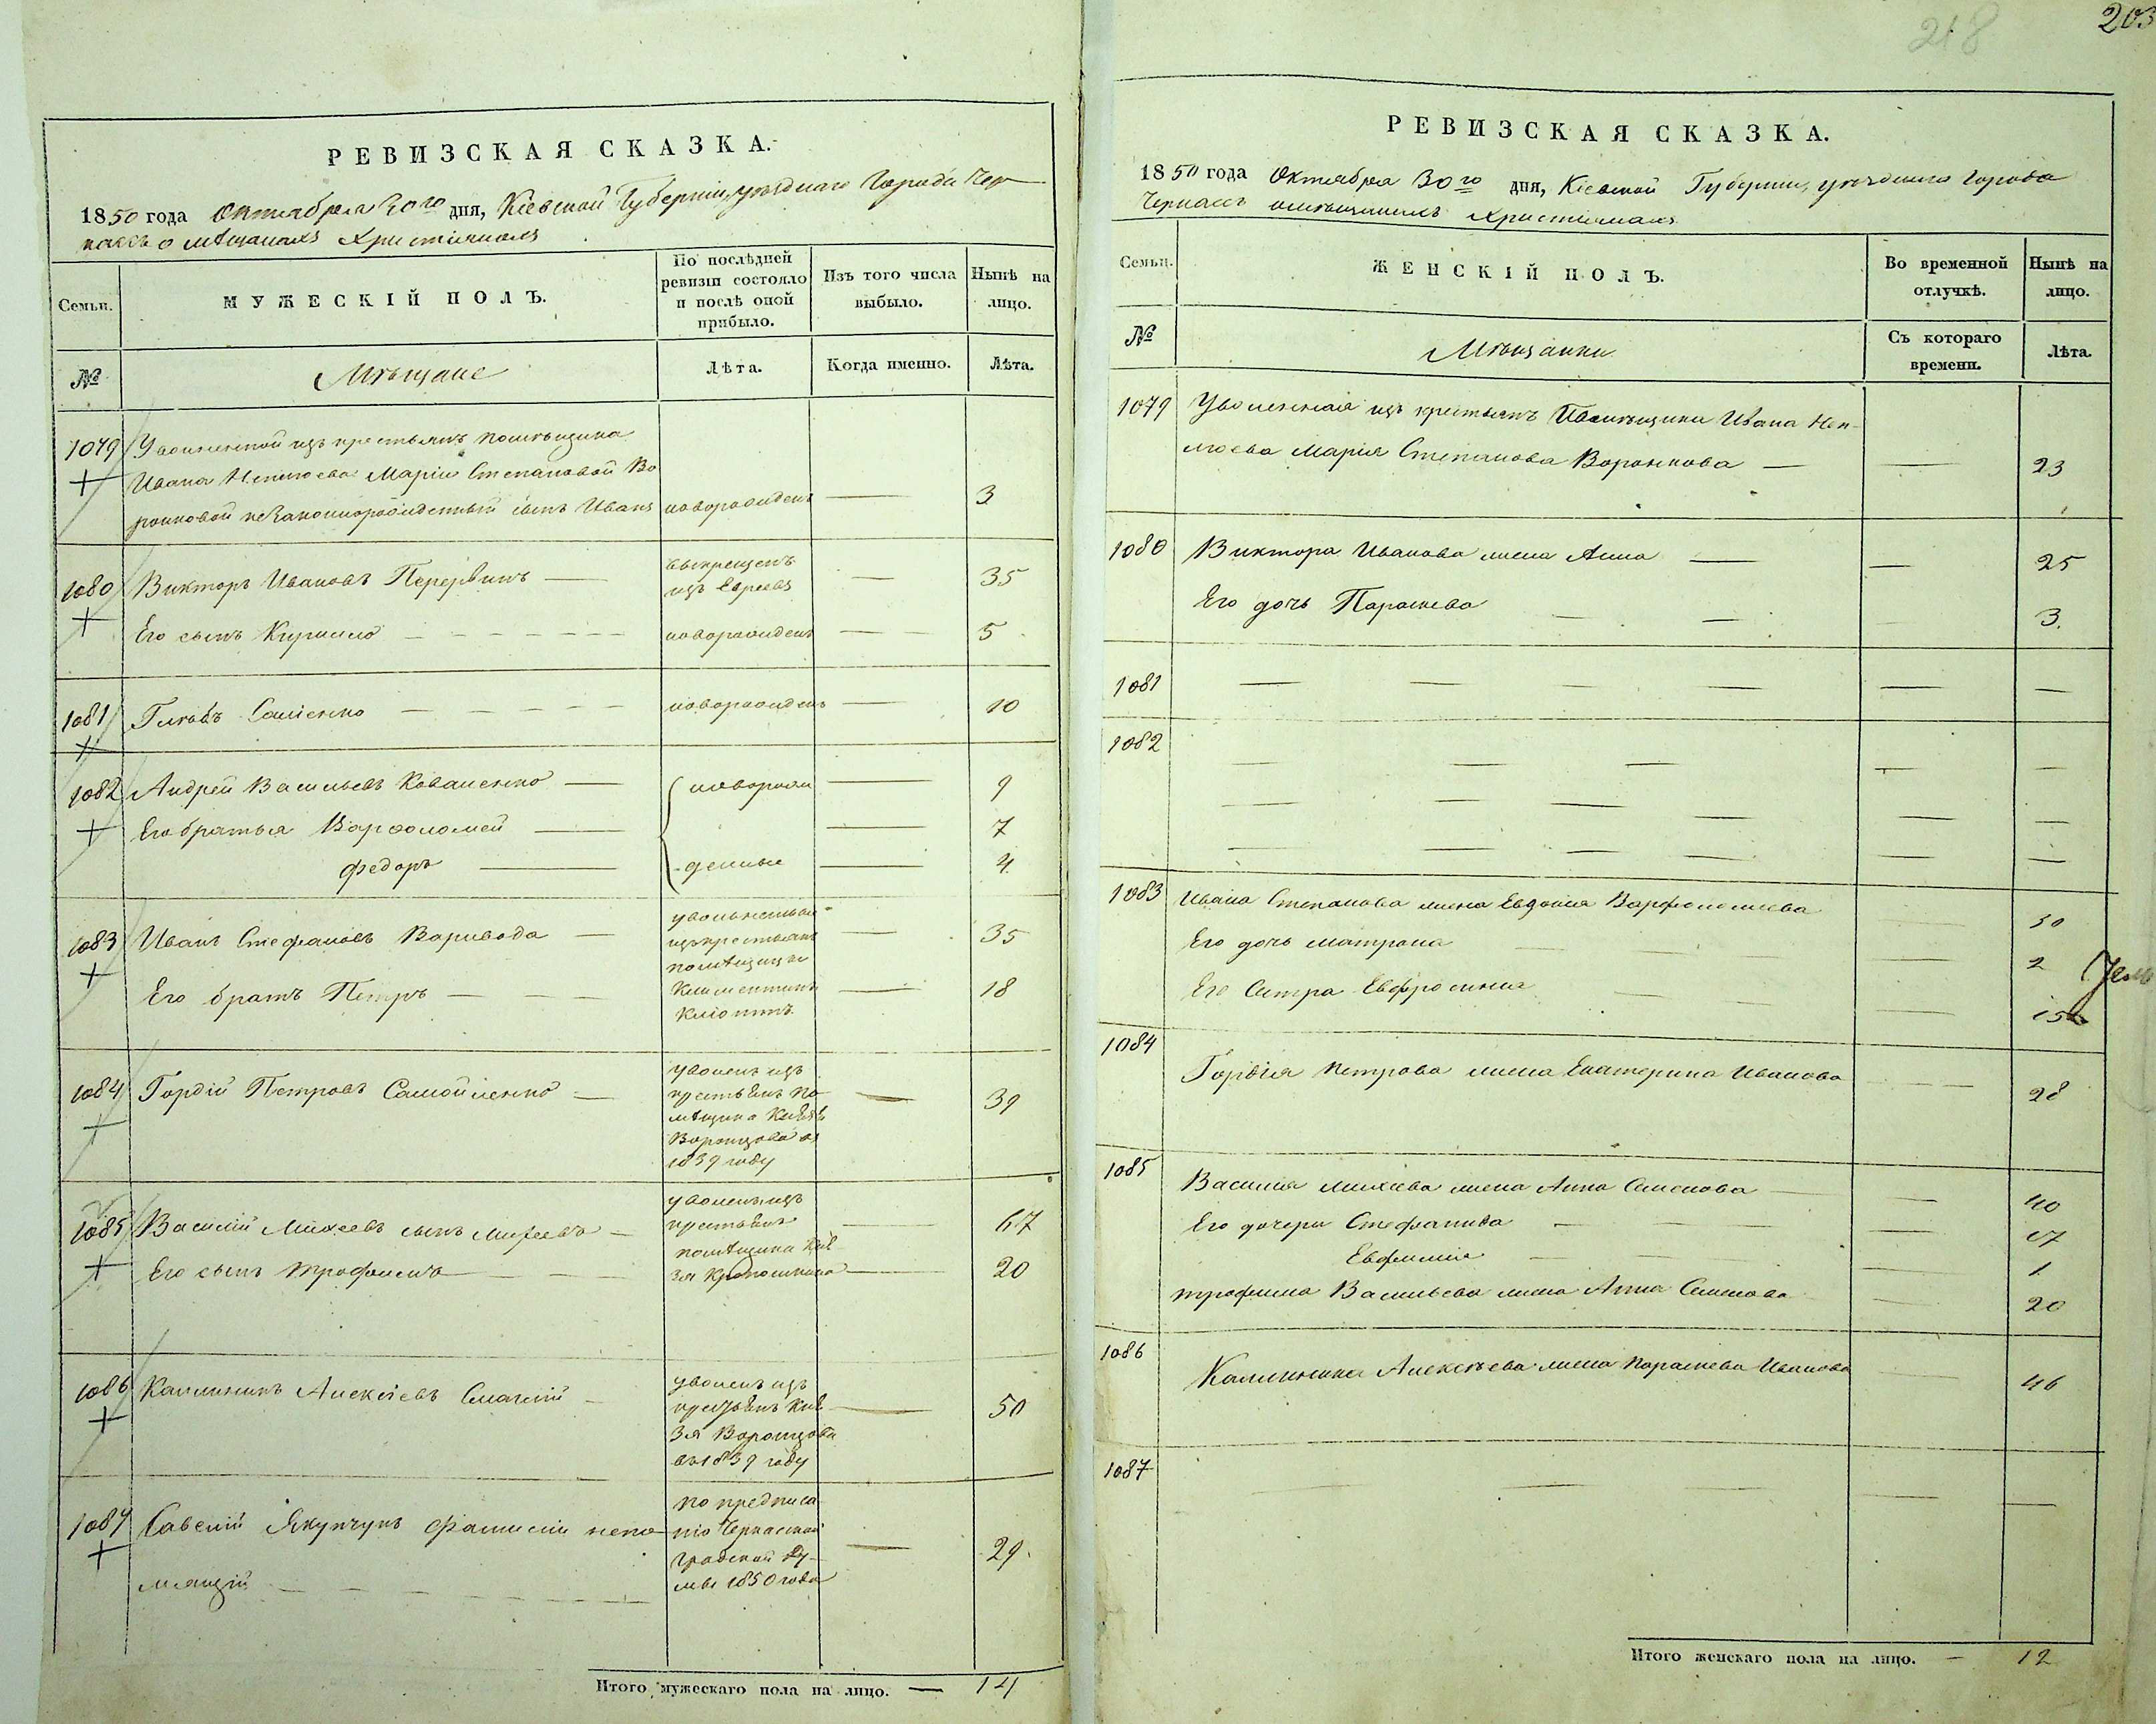 218
203
РЕВИЗСКАЯ СКАЗКА.
1850 года Октября 30го дня, Кіевской Губерніи, уѣзднаго Города Чер-
касъ о мѣщанахъ Христіянахъ
Семьи.
МУЖЕСКІЙ ПОЛЪ.
По послѣдней ревизіи состояло и послѣ оной прибыло.
Изъ того числа выбыло.
Нынѣ на лицо.
№
Мѣщане
Лѣта.
Когда именно.
Лѣта.
1079 Уволенной изъ крестьянъ помѣщика
Ивана Неплюева Маріи Степановой Во
ронковой незаконнорожденный сынъ Иванъ новорожденъ — 3
1080 Викторъ Ивановъ Перервинъ — выкрещенъ изъ Евреевъ — 35
Его сынъ Кирилло новорожденъ — 5
1081 Глѣбъ новорожденъ — 10
1082 Андрей Васильевъ Коваленко — новорож — 9
Его братья Варфоломей — — 7
Федоръ — денные — 4
1083 Иванъ Стефановъ Варивода — увольненные изъ крестьянъ — 35
помѣщицы
Его братъ Петръ — — — 18
1084 Гордій Петровъ Самойленко — уволенъ изъ
крестьянъ по
мѣщика Князя — 39
Воронцова въ
1839 году
1085 Василій Михеевъ сынъ Михеевъ — уволенъ изъ
крестьянъ — 67
помѣщика Кня
Его сынъ Трофимъ — зя — 20
1086 Калинникъ Алексіевъ уволенъ изъ
крестьянъ Кня — 50
зя Воронцова
въ 1839 году
1087 Савелій Якунчукъ фамиліи непо
мнящій
по предписа
нію Черкаской
градской Ду- — 29.
мы 1850 года
Итого мужескаго пола на лицо. — 14
РЕВИЗСКАЯ СКАЗКА.
1850 года Октября 30го дня, Кіевской Губерніи, уѣзднаго города
Черкасъ о мѣщанахъ Христіянахъ
Семьи.
ЖЕНСКІЙ ПОЛЪ.
Во временной отлучкѣ.
Нынѣ на лицо.
№
Мѣщанки
Съ котораго времени.
Лѣта.
1079 Уволенная изъ крестьянъ Помѣщика Ивана Неп-
люева Марія Степанова Воронкова — — 23
1080 Виктора Иванова жена Анна — — 25
Его дочь Параскева — 3.
1081 — — — — — —
1082
— — — — —
— — — — — —
— — — — — —
1083 Ивана Степанова жена Евдокія Варфоломеева 30
Его дочь Матрона 2
Его Сестра Евфросинія 15
1084
Гордія Петрова жена Екатерина Иванова — 28
1085
Василія Михеева жена Анна Семенова — 40
Его дочери Стефанида — 17
Евфимія — 1
Трофима Васильева жена Анна Семенова — 20
1086
Калинника Алексѣева жена Параскева Иванова — 46
1087
— — — — —
Итого женскаго пола на лицо. — 12